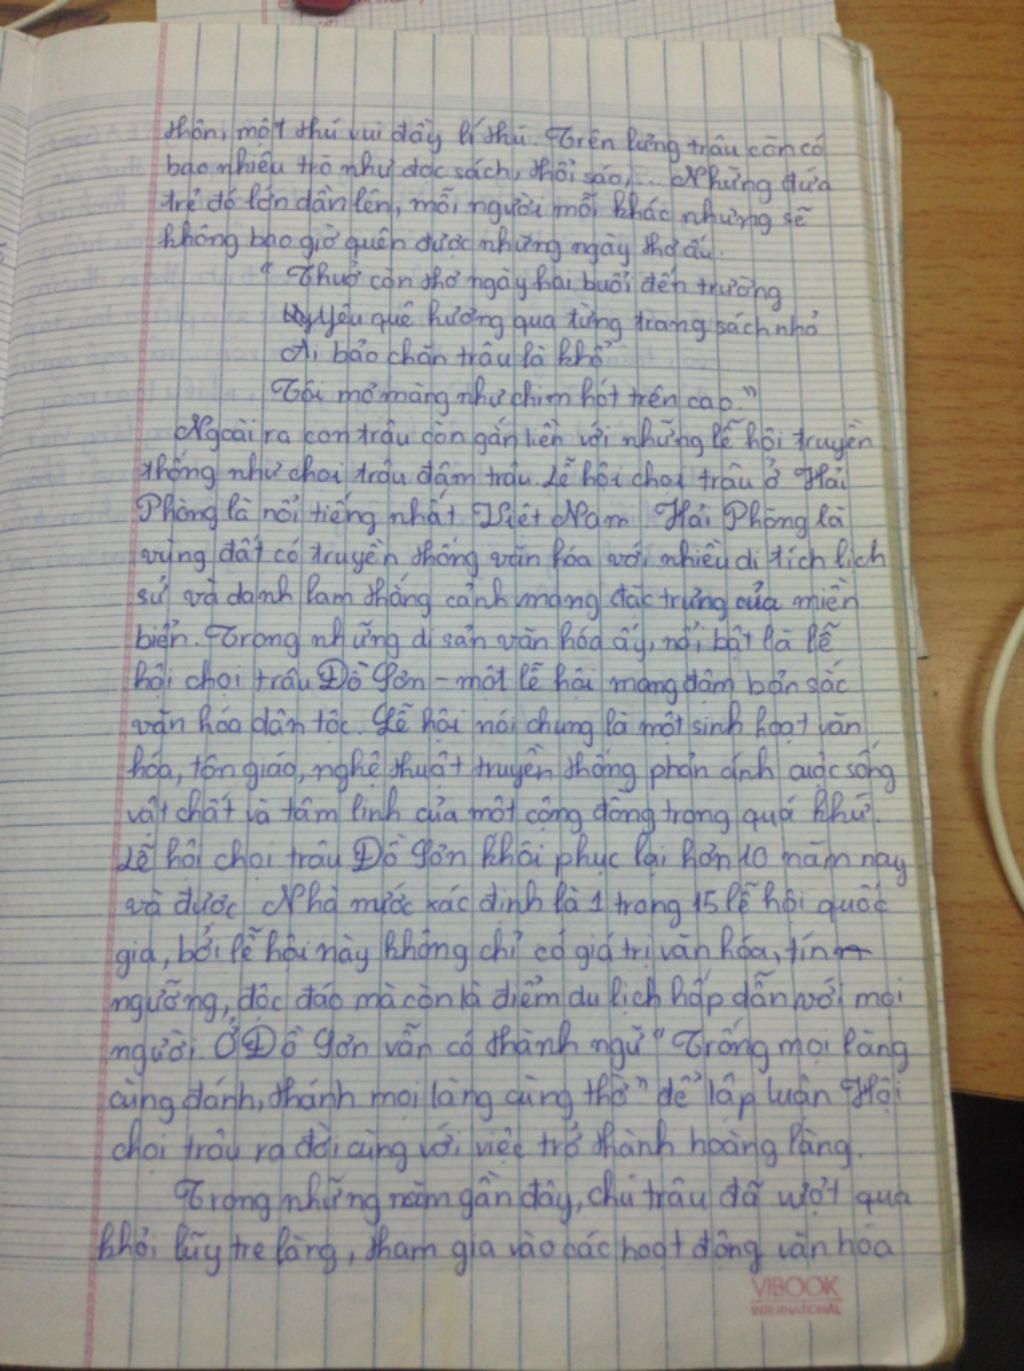 thôn, một thú vui đầy lí thú. Trên lưng trâu còn có
bao nhiêu trò như đọc sách, thổi sáo,... Những đứa
trẻ đó lớn dần lên, mỗi người mỗi khác nhưng sẽ
không bao giờ quên được những ngày thơ ấu.
" Thuở còn thơ ngày hai buổi đến trường
Yêu quê hương qua từng trang sách nhỏ
Ai bảo chăn trâu là khổ
Tôi mơ màng như chim hót trên cao."
Ngoài ra con trâu còn gắn liền với những lễ hội truyền
thống như chọi trâu đâm trâu. Lễ hội chọi trâu ở Hải
Phòng là nổi tiếng nhất Việt Nam. Hải Phòng là
vùng đất có truyền thống văn hóa với nhiều di tích lịch
sử và danh lam thắng cảnh mang đặc trưng của miền
biển. Trong những di sản văn hóa ấy, nổi bật là lễ
hội chọi trâu Đồ Sơn - một lễ hội mang đậm bản sắc
văn hóa dân tộc. Lễ hội nói chung là một sinh hoạt văn
hóa, tôn giáo, nghệ thuật truyền thống phản ánh cuộc sống
vật chất và tâm linh của một cộng đồng trong quá khứ.
Lễ hội chọi trâu Đồ Sơn khôi phục lại hơn 10 năm nay
và được Nhà nước xác định là 1 trong 15 lễ hội quốc
gia, bởi lễ hội này không chỉ có giá trị văn hóa, tín
ngưỡng, độc đáo mà còn là điểm du lịch hấp dẫn với mọi
người. Ở Đồ Sơn vẫn có thành ngữ "Trống mọi làng
cùng đánh, thánh mọi làng cùng thờ" để lập luận Hội
chọi trâu ra đời cùng với việc trở thành hoàng làng.
Trong những năm gần đây, chú trâu đã vượt qua
khỏi lũy tre làng, tham gia vào các hoạt động văn hóa
VIBOOK
INTERNATIONAL